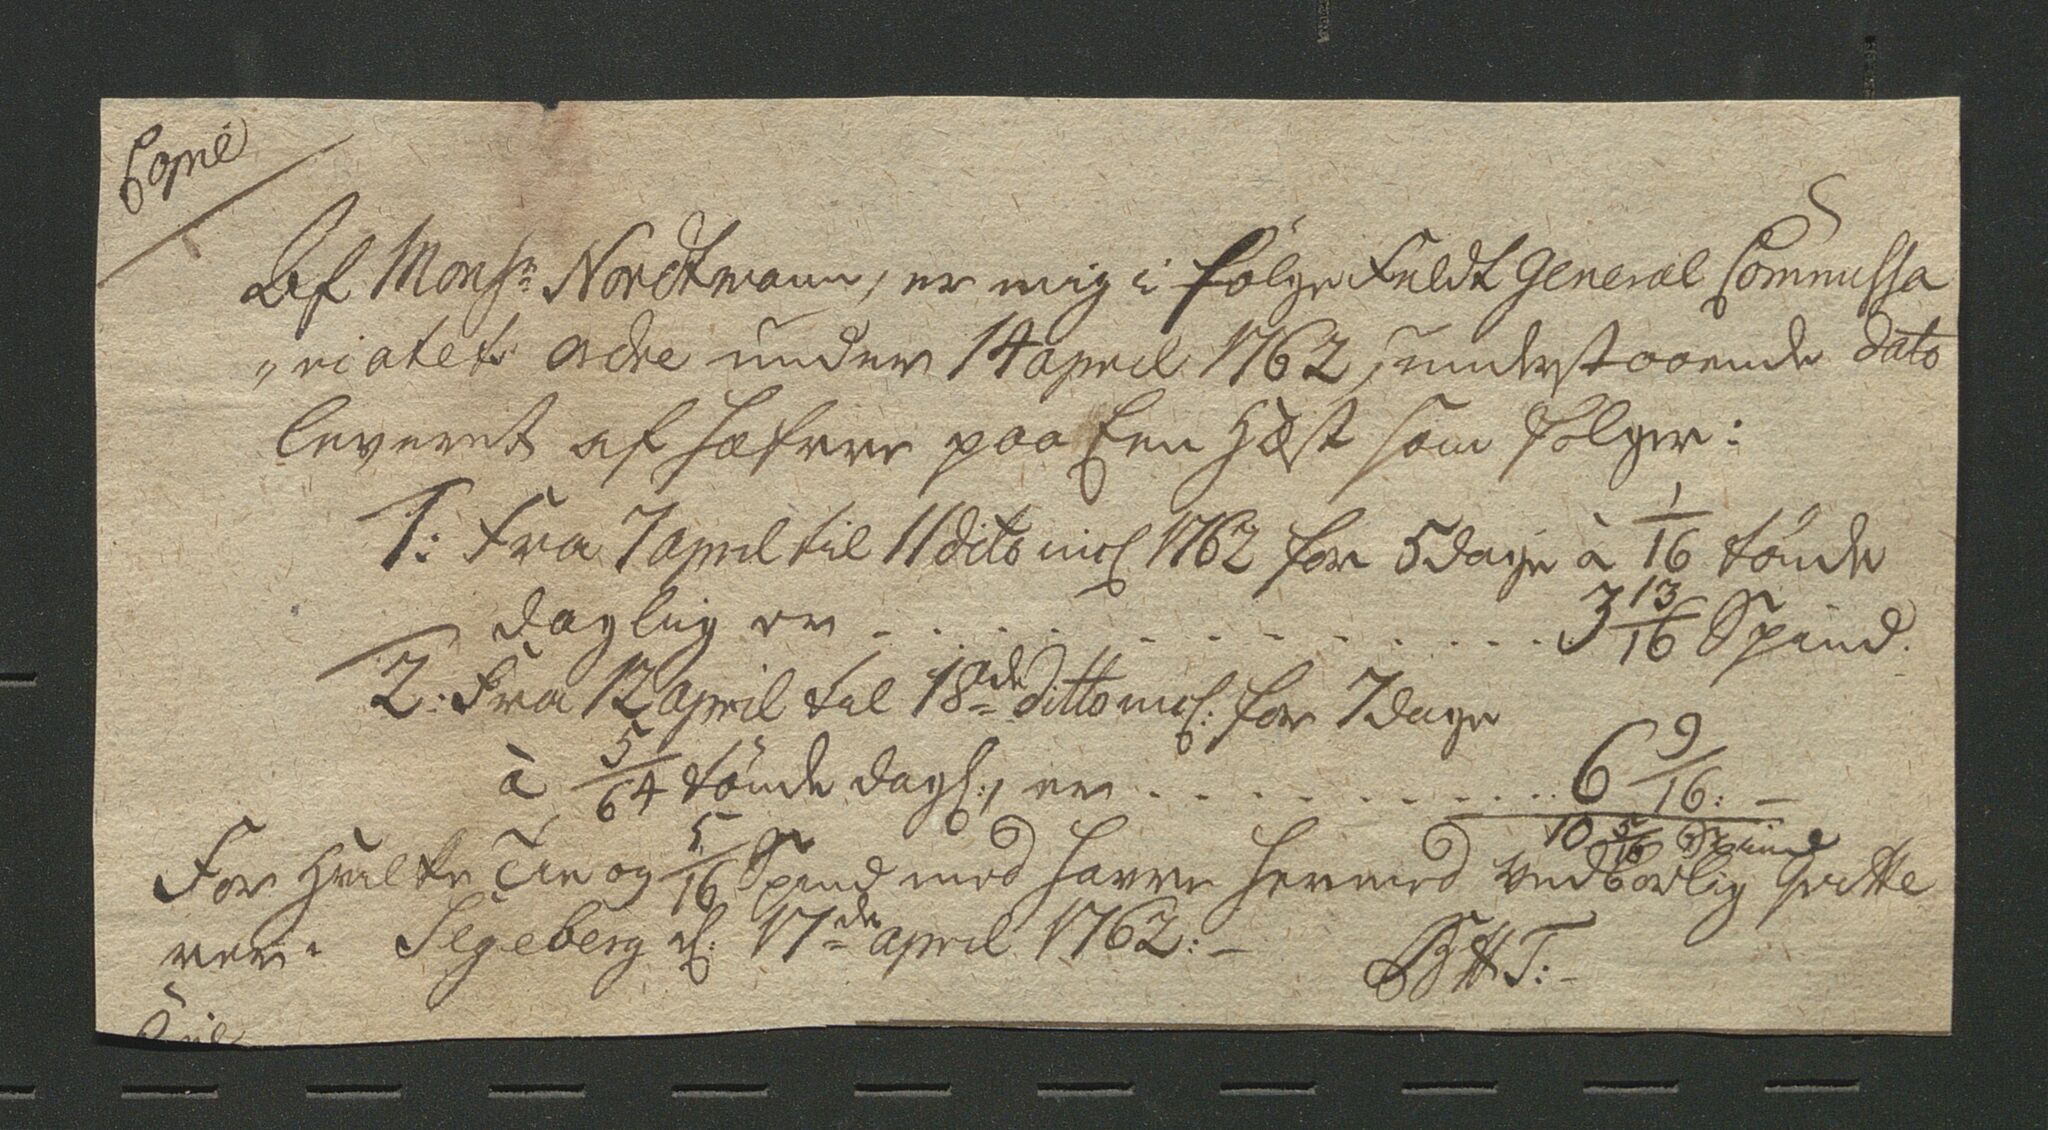 Copie
Af Monsr. Nordtmann, er mig i følge Feldt General Commissa
„riatets Ordre under 14 april 1762, understaaende dato
leveret af Hafrre paa Een Hæst som følger:
1: Fra 7 april til 11 dito incl 1762 for 5 dage à 1/16 tönde
daglig er - . . . . . . . . . . . . 3 13/16 Spind.
2: Fra 12 april til 18de ditto incl: for 7 dage
à 5/64 tönde dagl:, er . . . . . . . . . . 6 9/16: —
10 5/16 Spind
For Hvilke Tie og 5/16 Spind med Havre hermed vedbørlig qvitte
rer. Segeberg d: 17de april 1762: —
BHT: -